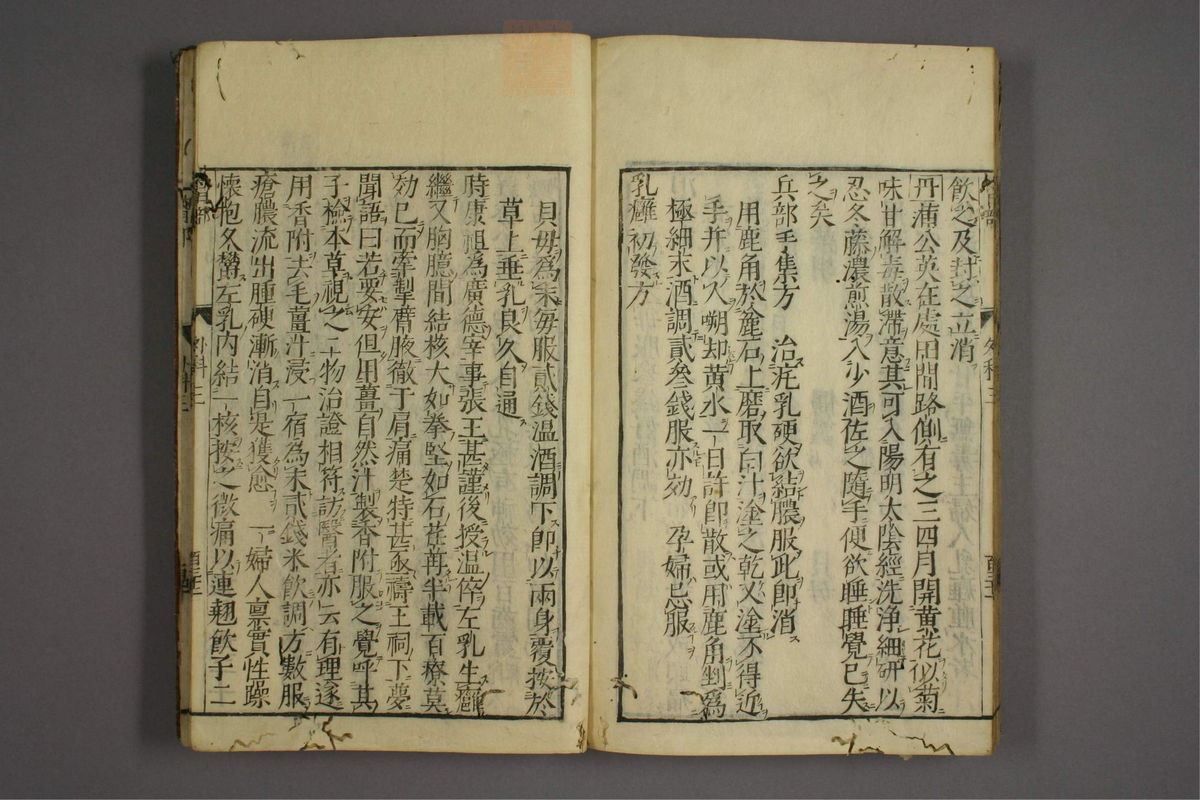 飲之及封之立消
丹蒲公英在處田間路側有之三四月開黄花似菊
味甘解毒散滯意其可入陽明太陰經洗浄細研以
忍冬藤濃煎湯入少酒佐之隨手便欲睡睡覺已失
之矣
兵部手集方　治疟乳硬欲結膿服此即消
用鹿角於麄石上磨取白汁塗之乾又塗不得近
手并以人嗍却黄水一日許即散或用鹿角剉爲
極細末酒調貳叁錢服亦効　孕婦忌服
乳癰初發方
貝母爲末毎服貳錢温酒調下即以兩身覆按於
草上垂乳良久自通
時康祖爲廣德宰事張王甚謹後授温倅左乳生癰
繼又胸臆間結核大如拳堅如石荏苒半載百療莫
効已而牽掣臂腋徹于肩痛楚特甚亟禱王祠下夢
聞語曰若要安但用薑自然汁製香附服之覺呼其
子檢本草視之二物治證相符訪醫者亦云有理遂
用香附去毛薑汁浸一宿為末貳錢米飲調方數服
瘡膿流出腫硬漸消自是獲愈　一婦人禀實性躁
懷抱久欝左乳内結一核按之微痛以連翹飲子二